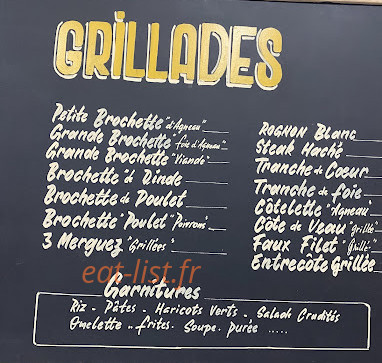 GRILLADES
Petite Brochette "d'Agneau"
Grande Brochette "foie d'Agneau"
Grande Brochette "Viande"
Brochette d Dinde
Brochette de Poulet
Brochette "Poulet" Poivrons"
3 Merguez "Grillées"
ROGNON Blanc
Steak Haché
Tranche de Coeur
Tranche de foie
Côtelette "Agneau"
Côte de Veau "grillé"
Faux Filet "Grillé"
Entrecôte Grillée
eat-list.fr
Garnitures
Riz - Pâtes - Haricots Verts - Salade Crudités
Omelette - frites. Soupe. Purée .....